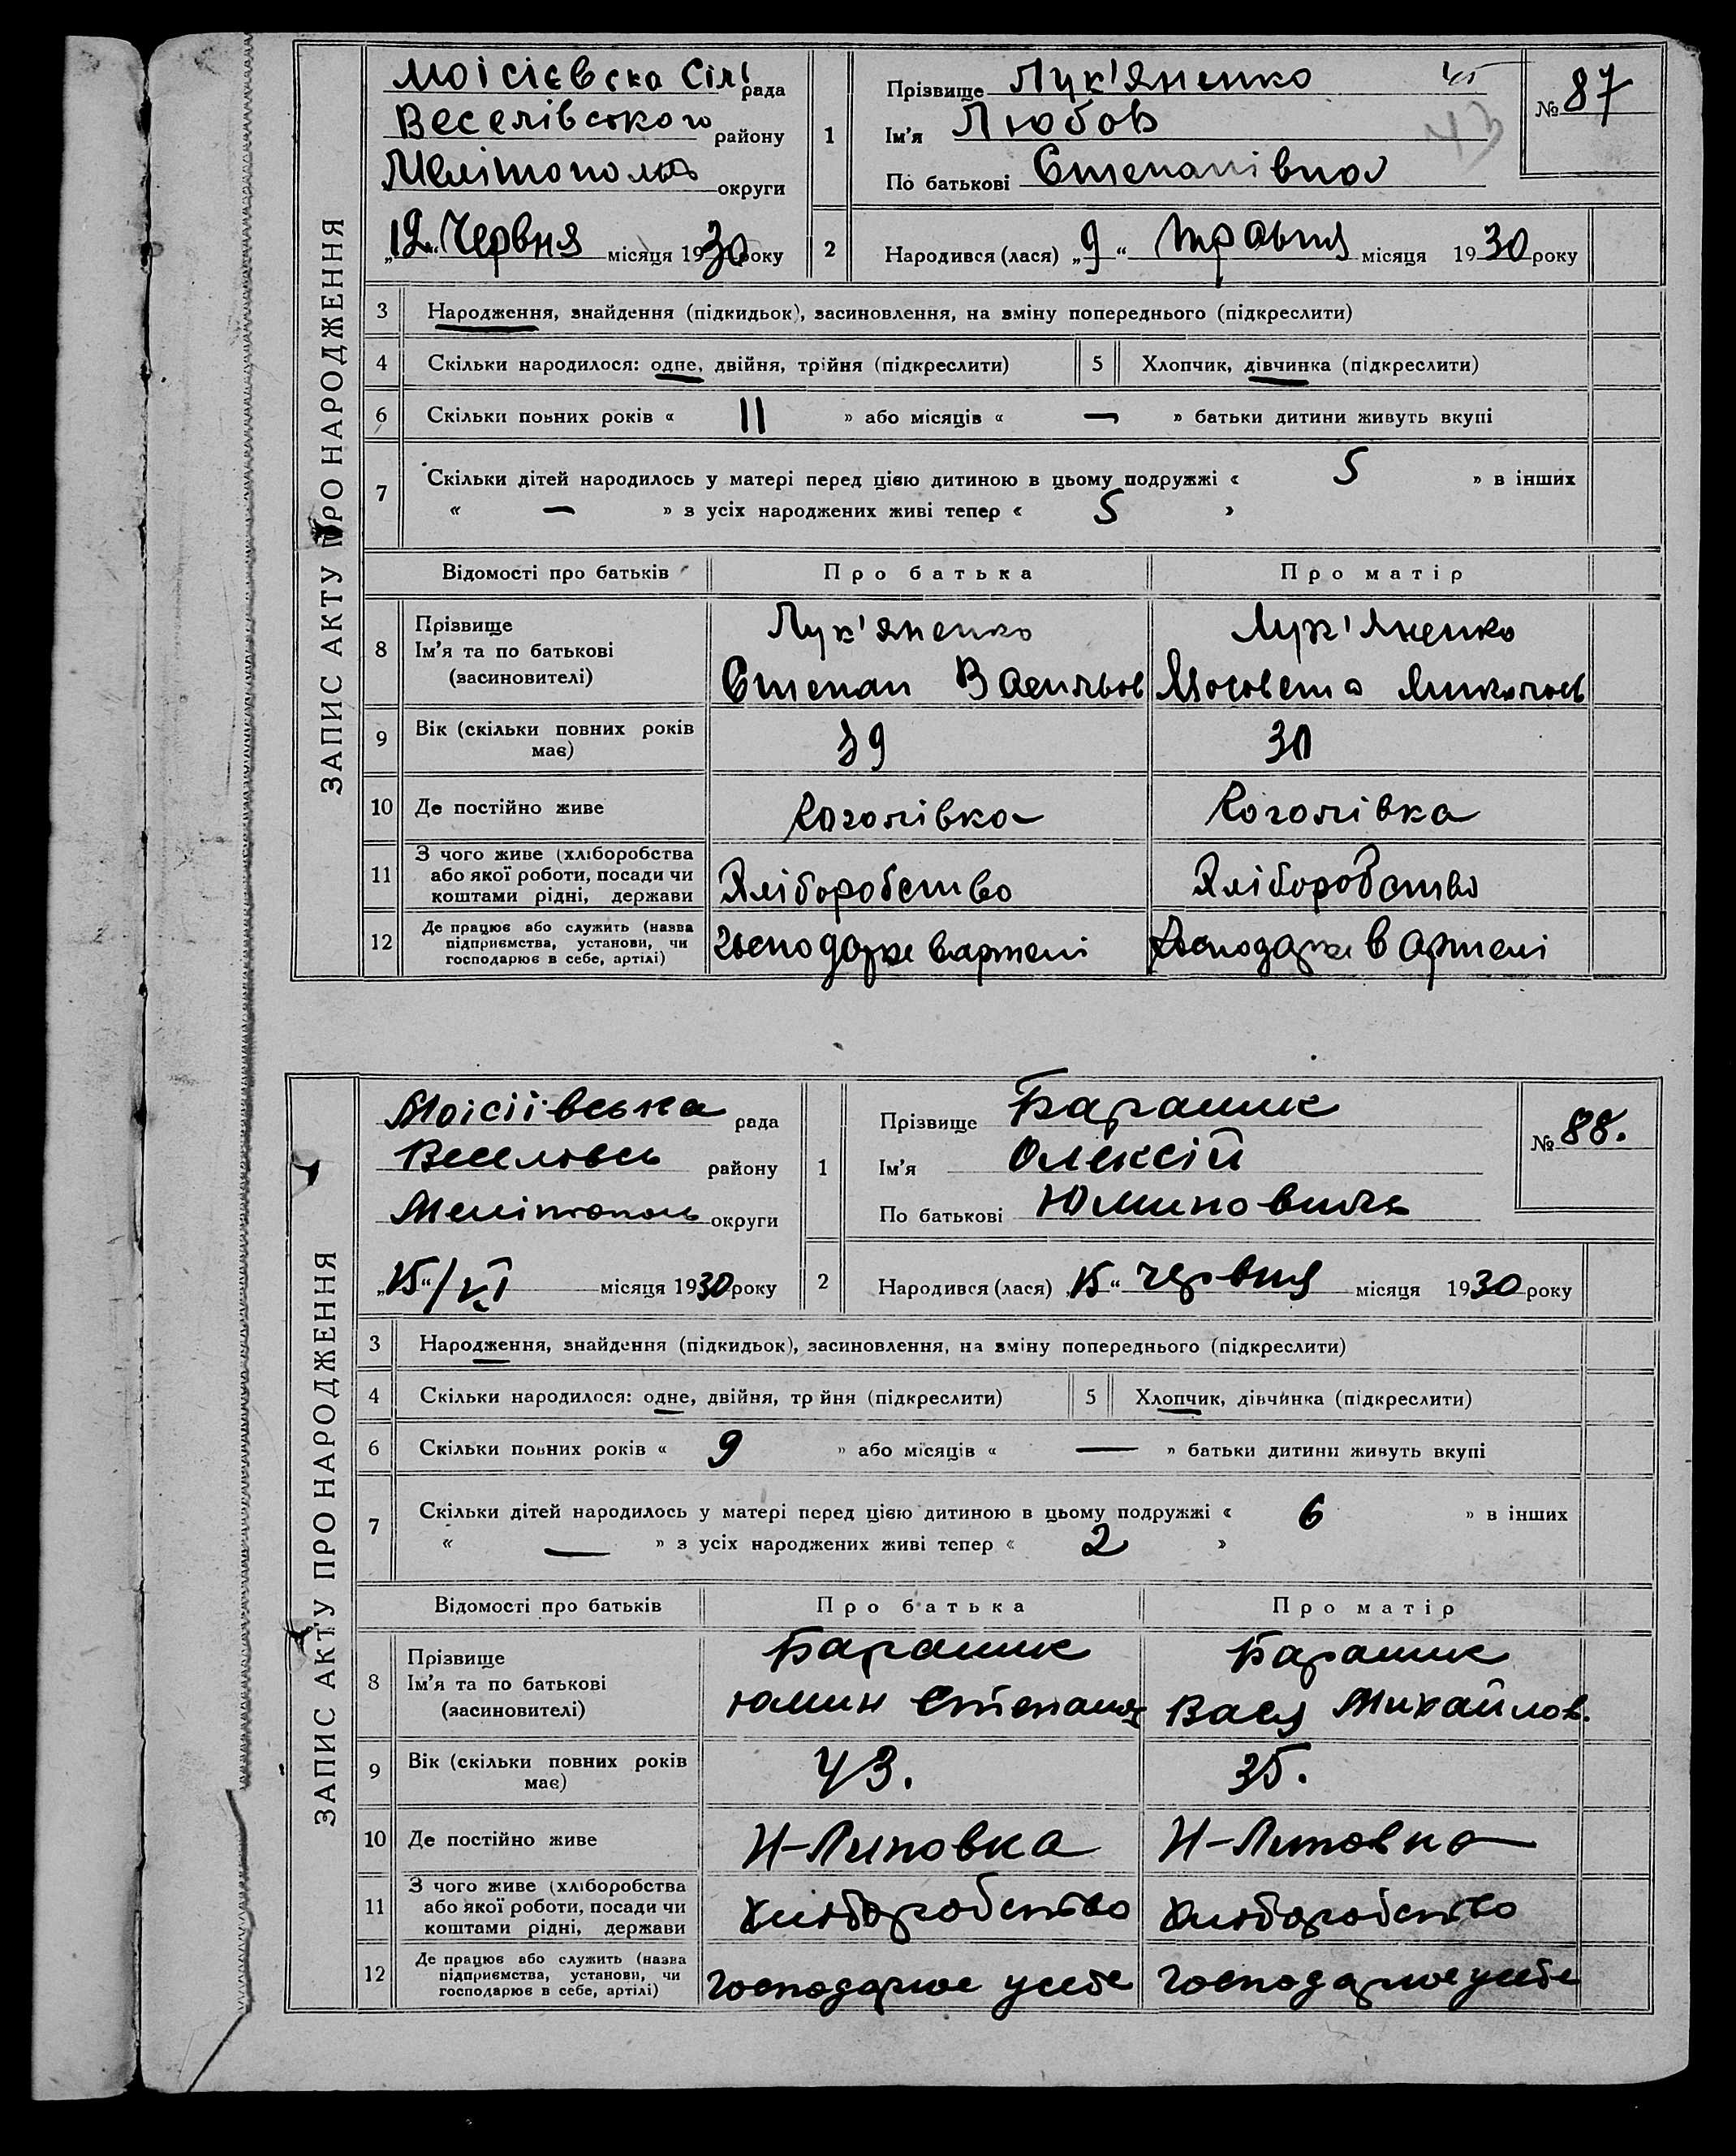 ЗАПИС АКТУ ПРО НАРОДЖЕННЯ
Моісієвска Сіл. рада
Веселівського району
Мелітополь округи
„12“ Червня місяця 1930 року
1 Прізвище Лук'яненко
Ім'я Любов
По батькові Степанівна
№ 87
2 Народився (лася) „9“ травня місяця 1930 року
3 Народження, знайдення (підкидьок), засиновлення, на зміну попереднього (підкреслити)
4 Скільки народилося: одне, двійня, трійня (підкреслити) 5 Хлопчик, дівчинка (підкреслити)
6 Скільки повних років « 11 » або місяців « — » батьки дитини живуть вкупі
7 Скільки дітей народилось у матері перед цією дитиною в цьому подружжі « 5 » в інших
« — » з усіх народжених живі тепер « 5 »
Відомості про батьків Про батька Про матір
8 Прізвище Ім'я та по батькові (засновителі)
Лук'яненко Лук'яненко
Степан Васильов Миколаєв
9 Вік (скільки повних років має) 39 30
10 Де постійно живе
11 З чого живе (хліборобства або якої роботи, посади чи коштами рідні, держави Хліборобство Хліборобство
12 Де працює або служить (назва підприємства, установи, чи господарює в себе, артілі) в артелі в артелі
ЗАПИС АКТУ ПРО НАРОДЖЕННЯ
Моісіївська рада
Веселовсь району
Мелітополь округи
„15“/VI місяця 1930 року
1 Прізвище Баранник
Ім'я Олексій
По батькові Юминович
№ 88.
2 Народився (лася) „15“ червня місяця 1930 року
3 Народження, знайдення (підкидьок), засиновлення, на зміну попереднього (підкреслити)
4 Скільки народилося: одне, двійня, тр йня (підкреслити) 5 Хлопчик, дівчинка (підкреслити)
6 Скільки повних років « 9 » або місяців « — » батьки дитини живуть вкупі
7 Скільки дітей народилось у матері перед цією дитиною в цьому подружжі « 6 » в інших
« — » з усіх народжених живі тепер « 2 »
Відомості про батьків Про батька Про матір
8 Прізвище Ім'я та по батькові (засиновителі)
Баранник Баранник
Юмин Степанов Васа Михайлов.
9 Вік (скільки повних років має) 43. 35.
10 Де постійно живе Н-Липовка Н-Липовка
11 З чого живе (хліборобства або якої роботи, посади чи коштами рідні, держави Хлиборобство Хлиборобство
12 Де працює або служить (назва підприємства, установи, чи господарює в себе, артілі) господарює у себе господарює у себе